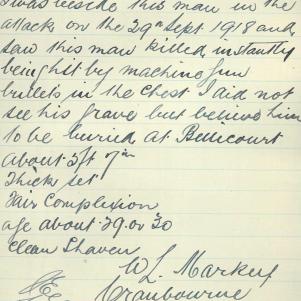 I was beside this man in the
attack on the 29th Sept 1918 and
saw this man killed instantly
being hit by machine gun
bullets in the chest I did not
see his grave but believe him
to be buried at Bellicourt
about 5ft 7in
Thick set
Fair Complexion
age about 29 or 30
Clean Shaven
W L
Cranbourne